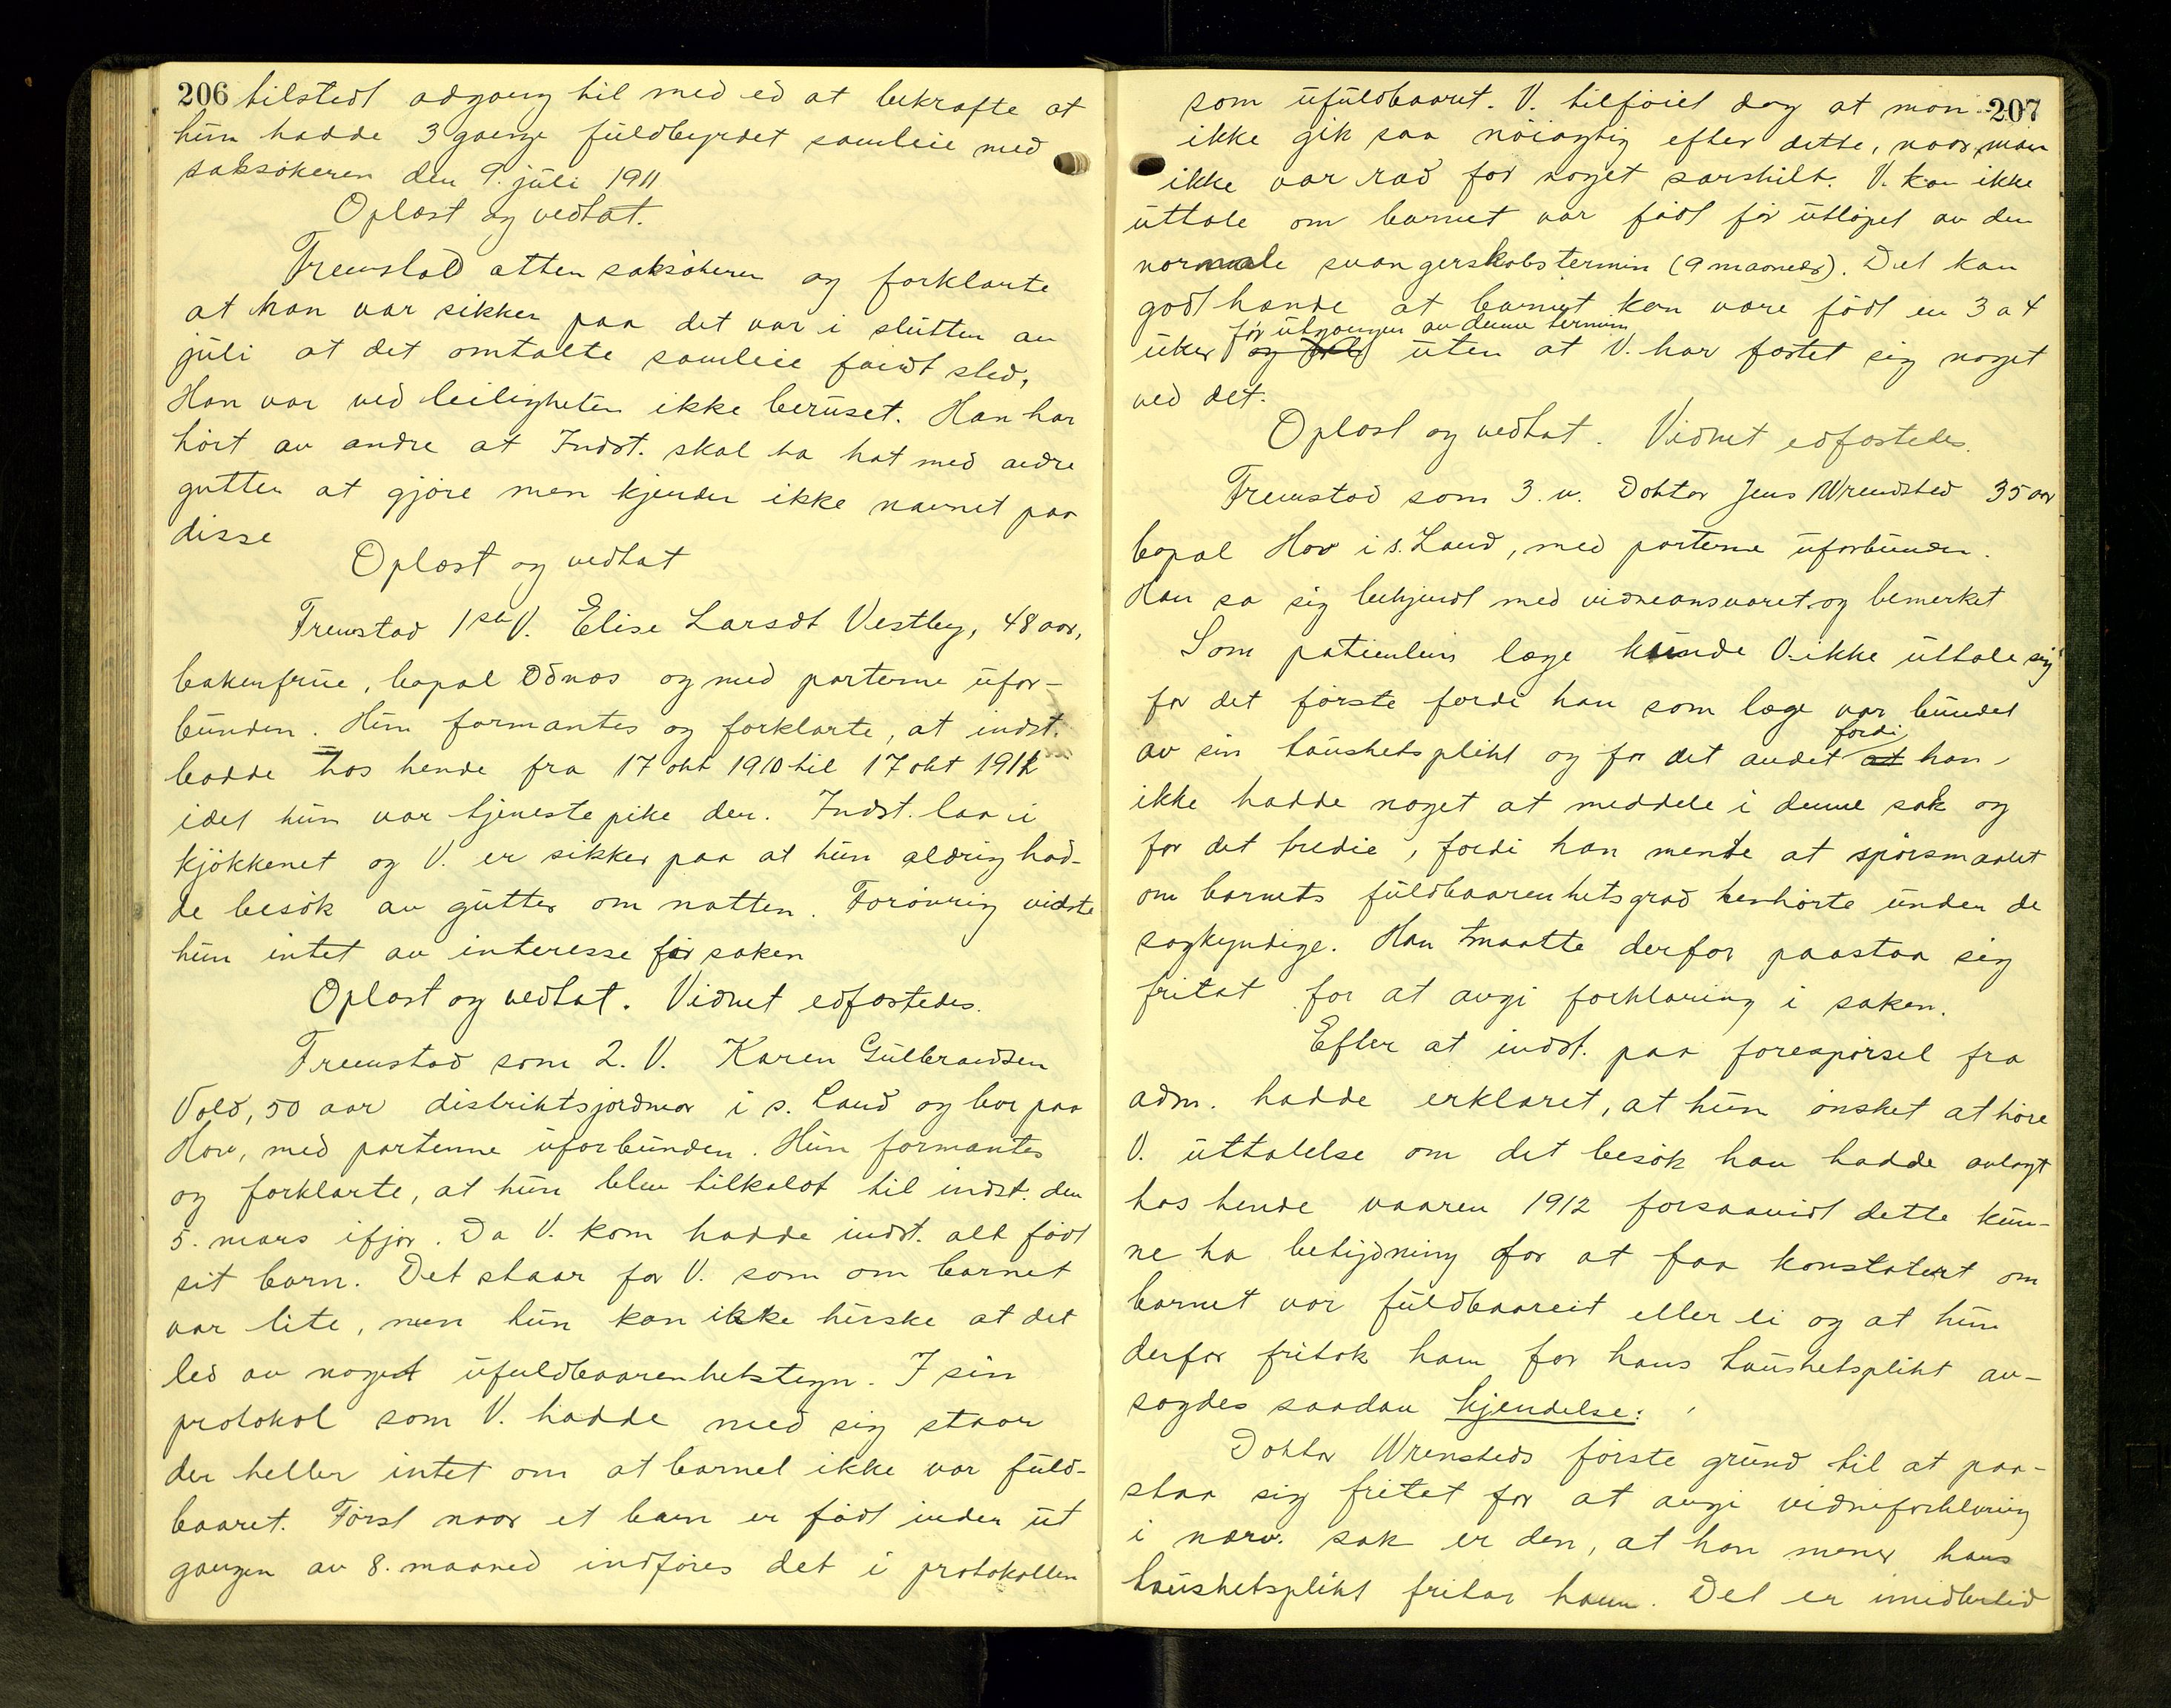 206 tilstedt adgang til med ed at bekræfte at
hun hadde 3 gange fuldbyrdet samleie med
saksøkeren den 9. juli 1911
Oplæst og vedtat.
Fremstod atter saksøkeren og forklarte
at han var sikker paa det var i slutten av
juli at det omtalte samleie fandt sted.
Han var ved leiligheten ikke beruset. Han har
hørt av andre at Indst. skal ha hat med andre
gutter at gjøre men kjender ikke navnet paa
disse
Oplæst og vedtat
Fremstod 1ste V. Elise Larsdt Vestby, 48 aar,
bakerfrue, bopæl Odnæs og med parterne ufor-
bunden. Hun formantes og forklarte, at indst.
bodde hos hende fra 17 okt 1910 til 17 okt 1911
idet hun var tjenestepike der. Indst. laa i
kjøkkenet og V. er sikker paa at hun aldrig had-
de besøk av gutter om natten. Forøvrig vidste
hun intet av interesse for saken
Oplæst og vedtat. Vidnet edfæstedes.
Fremstod som 2. V. Karen Gulbrandsen
Vold, 50 aar distriktsjordmor i s. Land og bor paa
Hov, med parterne uforbunden. Hun formantes
og forklarte, at hun blev tilkaldt til indst. den
5. mars ifjor. Da V. kom hadde indst. alt født
sit barn. Det staar for V. som om barnet
var lite, men hun kan ikke huske at det
led av noget ufuldbaarenhetstegn. I sin
protokol som V. hadde med sig staar
der heller intet om at barnet ikke var fuld-
baaret. Først naar et barn er født inden ut
gangen av 8. maaned indføres det i protokollen
207
som ufuldbaaret. V. tilføiet dog at man
ikke gik saa nøiagtig efter dette, naar man
ikke var ræd for noget særskilt. V. kan ikke
uttale om barnet var født før utløpet av den
normale svangerskabstermin (9 maaneder). Det kan
godt hænde at barnet kan være født en 3 a 4
før utgangen av denne termin
uker og uten at V. har fæstet sig noget
ved det.
Oplæst og vedtat. Vidnet edfæstedes.
Fremstod som 3. v. Doktor Jens Wrendsted 35 aar
bopæl Hov i s. Land, med parterne uforbunden.
Han sa sig bekjendt med vidneansvaret og bemerket
Som patientens læge kunde V. ikke uttale sig
for det første fordi han som læge var bundet
av sin taushetsplikt og for det andet at fordi han
ikke hadde noget at meddele i denne sak og
for det tredie, fordi han mente at spørsmaalet
om barnets fuldbaarenhetsgrad henhørte under de
sagkyndige. Han maatte derfor paastaa sig
fritat for at avgi forklaring i saken.
Efter at indst. paa forespørsel fra
adm. hadde erklæret, at hun ønsket at høre
V. uttalelse om det besøk han hadde avlagt
hos hende vaaren 1912 forsaavidt dette kun-
ne ha betydning for at faa konstatert om
barnet var fuldbaareit eller ei og at hun
derfor fritok ham for hans taushetsplikt av-
sagdes saadan kjendelse:
Doktor Wrensteds første grund til at paa-
staa sig fritat for at avgi vidneforklaring
i nærv. sak er den, at han mener hans
taushetsplikt fritar ham. Det er imidlertid